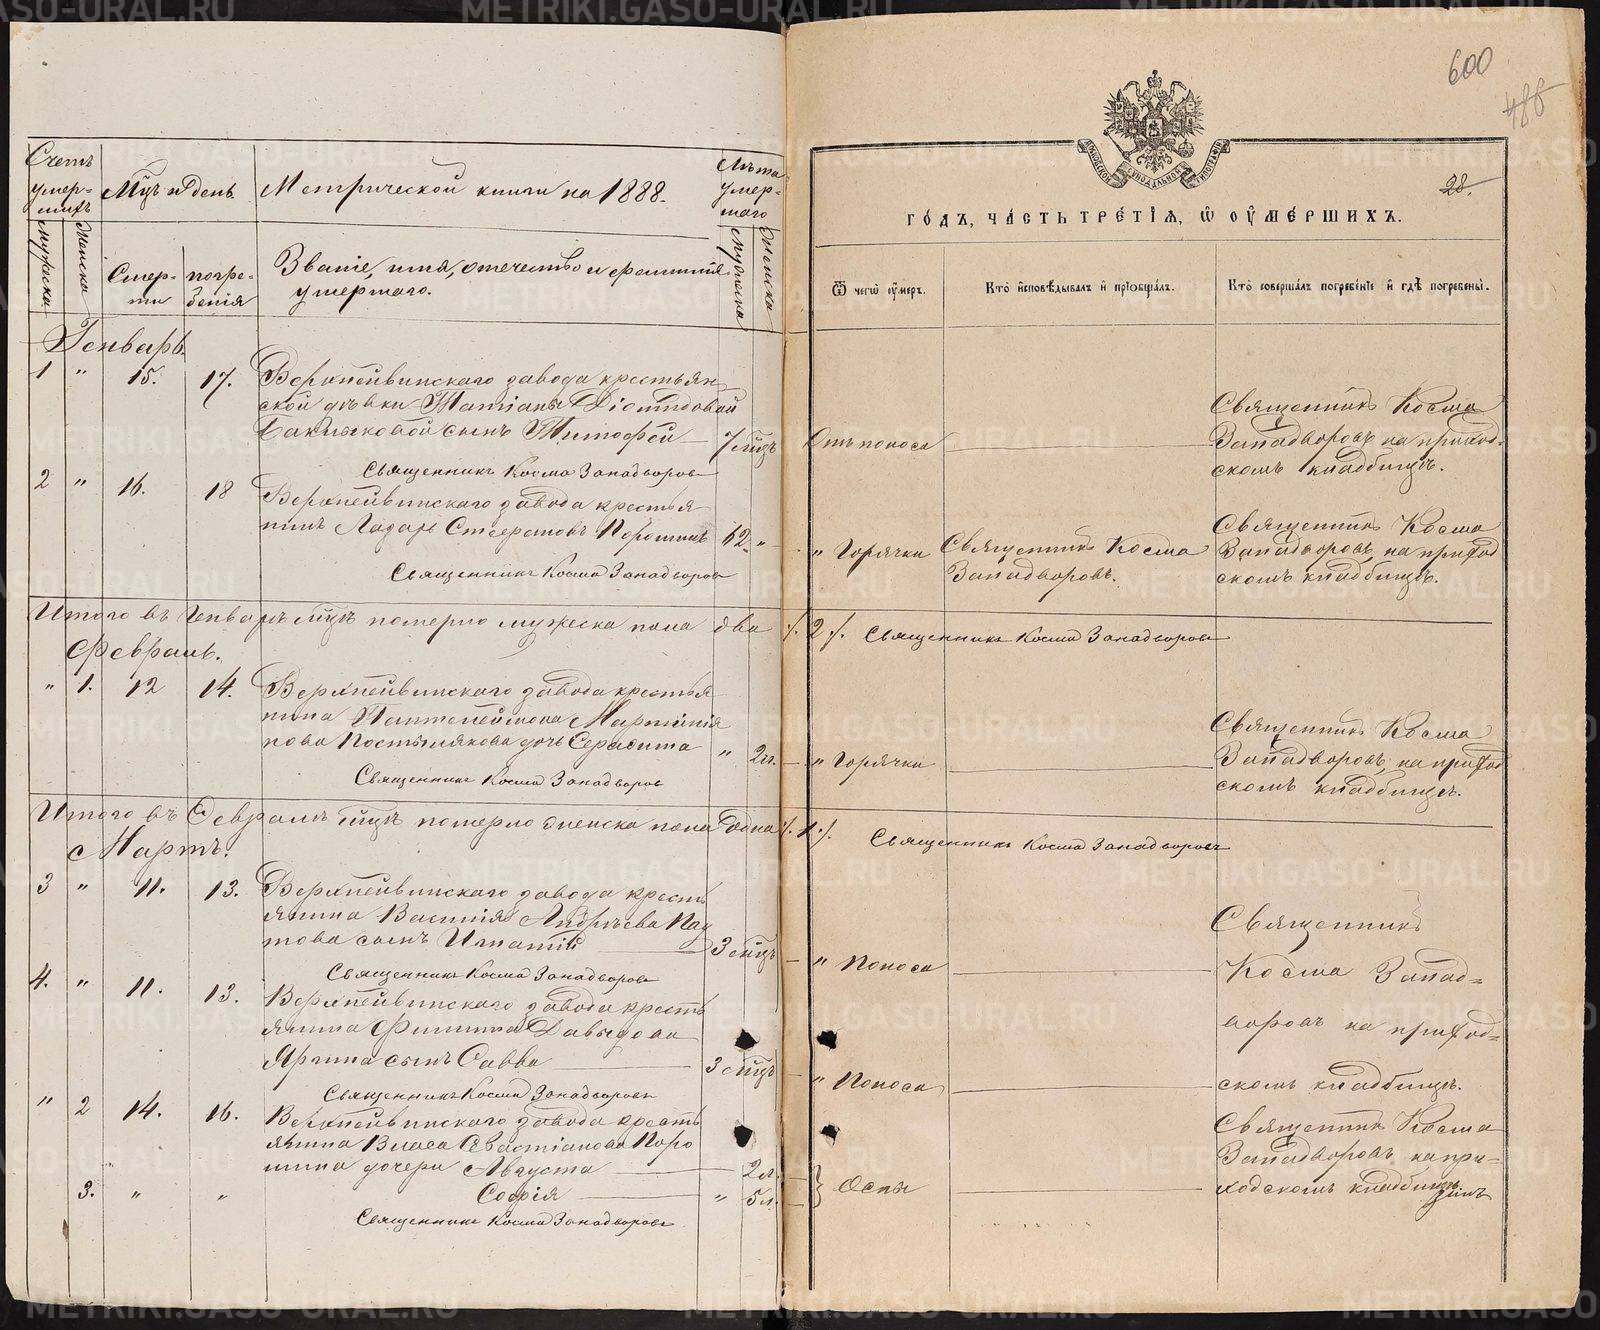 Счетъ умер-
шихъ
Мцъ и день
Метрической книги на 1888.
Лѣта
умер-
шаго
Мужеска
Женска
Смер-
ти
погре-
бенія
Званіе, имя, отечество и фамилія
умершаго.
Мужеска
Женска
Генварь.
1 " 15. 17. Верхнейвинскаго завода крестьян-
ской дѣвки Татіаны Діомидовой
сынъ Тимофей 7 мцъ
Священникъ Косма Западворовъ
2 " 16. 18 Верхнейвинскаго завода крестья
нинъ Лазарь Стефановъ Порошинъ 62 "
Священникъ Косма Западворовъ
Итого въ Генварѣ мцѣ померло мужеска пола два
Февраль.
" 1. 12 14. Верхнейвинскаго завода крестья
нина Пантелеймона Мартиніа
нова Постылякова дочь Серафима " 2 г.
Священникъ Косма Западворовъ
Итого въ Февралѣ мцѣ померло женска пола одна
Мартъ.
3 " 11. 13. Верхнейвинскаго завода кресть
янина Василія Андрѣева Пау
това сынъ Игнатій 3 мцъ
Священникъ Косма Западворовъ
4. " 11. 13. Верхнейвинскаго завода кресть
янина Филиппа Давыдова
Яргина сынъ Савва 3 мцъ
Священникъ Косма Западворовъ
" 2 14. 16. Верхнейвинскаго завода кресть
янина Власа Севастіанова Поро
шина дочери Августа 2 л.
3. " " Софія " 5 л.
Священникъ Косма Западворовъ
600
488
28.
МОСКОВСКОЙ СѴНОДАЛЬНОЙ ТИПОГРАФІИ
ГО́ДЪ, ЧА́СТЬ ТРЕ́ТІѦ, Ѡ҆ ОУ҆МЕ́РШИХЪ.
Ѿ чегѡ̀ ᲂу҆́меръ.
Кто̀ и҆сповѣ́дывалъ и҆ прїѡбща́лъ.
Кто̀ соверша́лъ погребе́нїе и҆ гдѣ̀ погребены̀.
Отъ поноса
Священникъ Косма
Западворовъ на приход-
скомъ кладбищѣ.
" Горячки Священникъ Косма
Западворовъ.
Священникъ Косма
Западворовъ, на приход
скомъ кладбищѣ.
./. 2 ./. Священникъ Косма Западворовъ
" Горячки
Священникъ Косма
Западворовъ, на приход
скомъ кладбищѣ.
./. 1 ./. Священникъ Косма Западворовъ
" Поноса
Священникъ
Косма Запад-
воровъ на приход-
" Поноса
скомъ кладбищѣ.
Оспы
Священникъ Косма
Западворовъ, на при-
ходскомъ кладбищѣ
METRIKI.GASO-URAL.RU